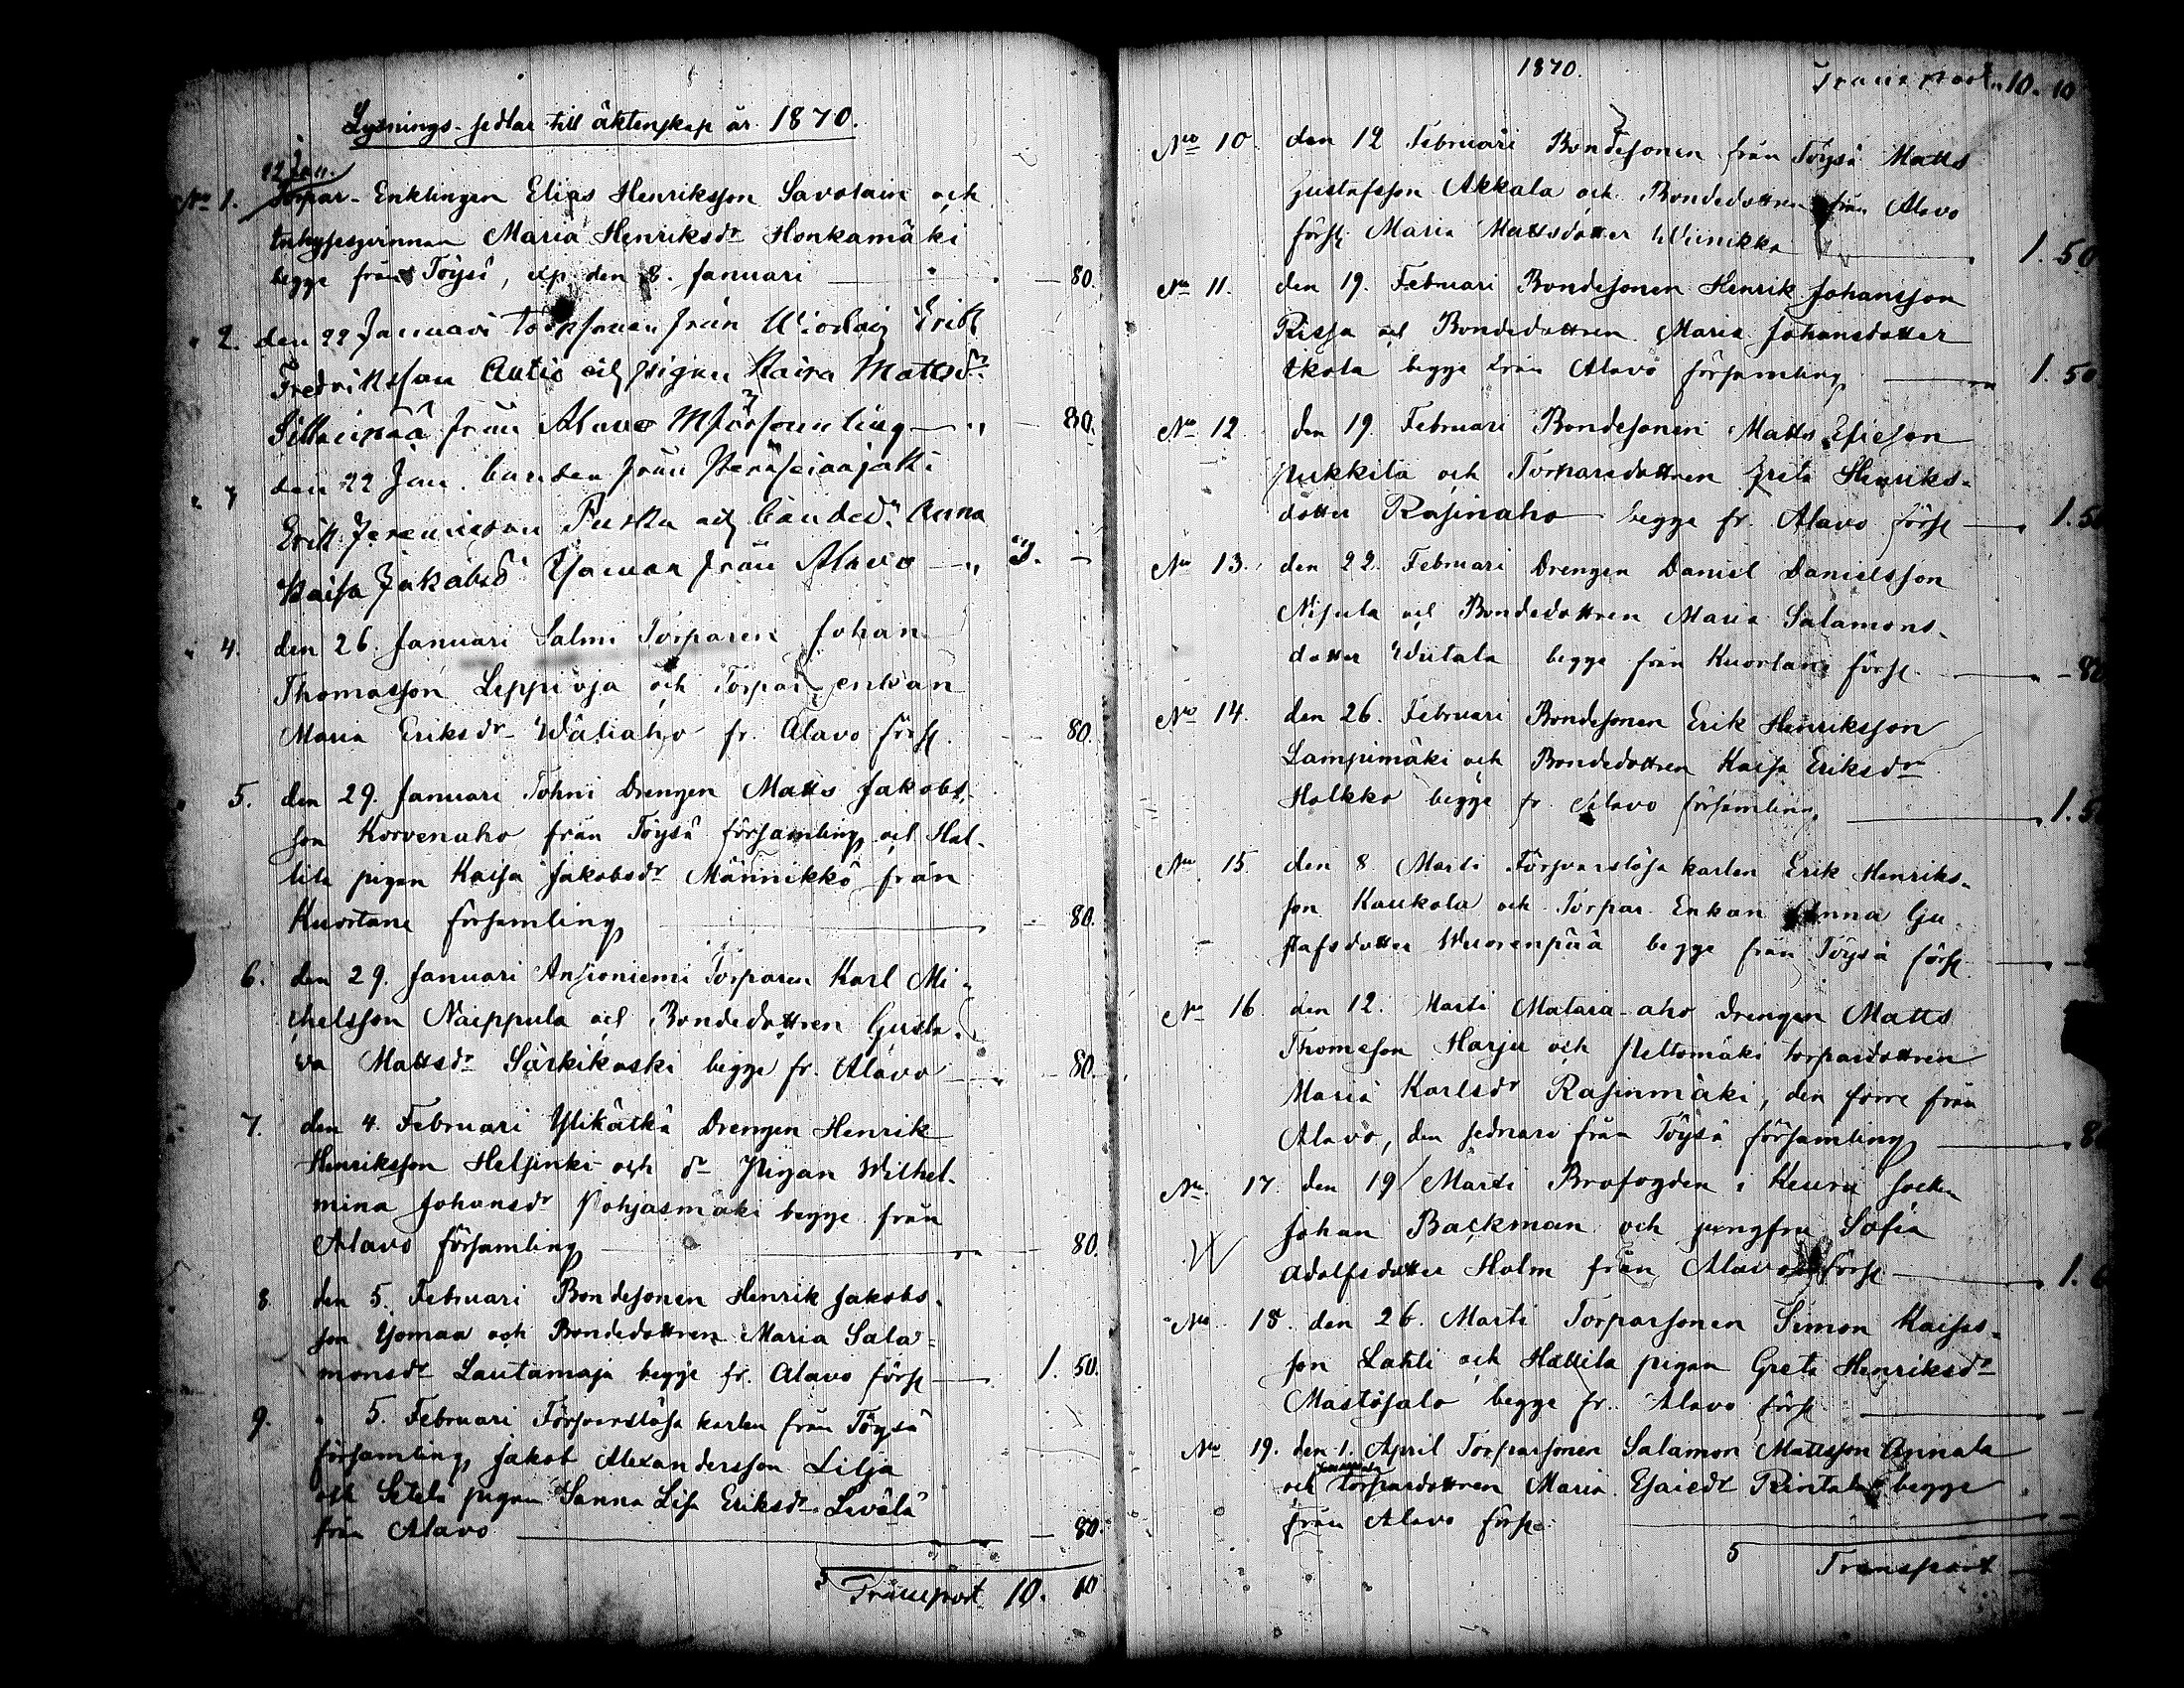 Lysnings-sedlar till äktenskap år 1870.
12 Jan.
No 1. Torpar-Enklingen Elias Henriksson Savolain och
inhysesqvinnan Maria Henriksdr Honkamäki
begge från Töysä, exp. den 8. Januari — 80.
2. den 22 Januari torpsonen från Wirdois Erik
Fredriksson Autio och pigan Kaisa Mattsdr
från Alavo församling — 80.
den 22 Jan. bonden från Peräseinäjoki
Erik Jeremiasson Puska och bonded. Anna
Kaisa Jakobsd. Yömaa från Alavo — 3. —
4. den 26. Januari Salmi Torparen Johan
Thomasson Leppioja och Torpar enkan
Maria Eriksdr Wäliaho fr. Alavo förs. — 80.
5. den 29. Januari Tohni Drengen Matts Jakobs-
son Korvenaho från Töysä församling och Hat-
tila pigan Kaisa Jakobsdr Männikkö från
Kuortane församling — 80.
6. den 29. Januari Ansioniemi Torparen Karl Mi-
chelsson Naippula och Bondedottren Gusta-
va Mattsdr Särkikoski begge fr. Alavo — 80.
7. den 4. Februari Ylikätkä Drengen Henrik
Henriksson Helsinki och dn Pigan Wilhel-
mina Johansdr Pohjasmäki begge från
Alavo församling — 80.
8. den 5. Februari Bondesonen Henrik Jakobs-
son Yömaa och Bondedottren Maria Sala-
monsdr Lautamaja begge fr. Alavo förs — 1. 50.
9. " 5. Februari Försvarslösa karlen från Töysä
församling Jakob Alexandersson Lilja
och Setälä pigan Sanna Lisa Eriksdr Levälä
från Alavo — 80.
Transport 10. 10
1870.
Transport 10. 10
No 10. den 12 Februari Bondesonen från Töysä Matts
Gustafsson Akkala och Bondedottren från Alavo
förs. Maria Mattsdotter Wiinikka — 1. 50
No 11. den 19. Februari Bondesonen Henrik Johansson
Rissa och Bondedottren Maria Johansdotter
Ikola begge från Alavo församling — 1. 50
No 12. den 19. Februari Bondesonen Matts Esieson
Pukkila och Torparedottren Greta Henriks-
dotter Rasinaho begge fr. Alavo förs — 1. 50
No 13. den 22. Februari Drengen Daniel Danielsson
Nisula och Bondedottren Maria Salamons-
dotter Wiitala begge från Kuortane förs. — 80
No 14. den 26. Februari Bondesonen Erik Henriksson
Lampimäki och Bondedottren Kaisa Eriksdr
Holkko begge fr. Alavo församling — 1. 5
No 15. den 8. Marti Försvarslösa karlen Erik Henriks-
son Kaukola och Torpar Enkan Anna Gu-
stafsdotter Wuorenpää begge från Töysä förs. —
No 16. den 12. Marti Mataia-aho Drengen Matts
Thomeson Harju och Peltomäki torpardottren
Maria Karlsdr Rasinmäki, den förre från
Alavo, den sednare från Töysä församling — 8
No 17. den 19 Marti Brofogden i Keuru Socken
Johan Backman och jungfru Sofia
Adolfsdotter Holm från Alavo förs — 1.
No 18. den 26. Marti Torparsonen Simon Kaisas-
son Lahti och Hattila pigan Greta Henriksdr
Mastosalo begge fr. Alavo förs —
No 19. den 1. April Torparsonen Salamon Mattsson Annala
och torpardottren Maria Esaiedr Rintala begge
från Alavo förs.
Transport